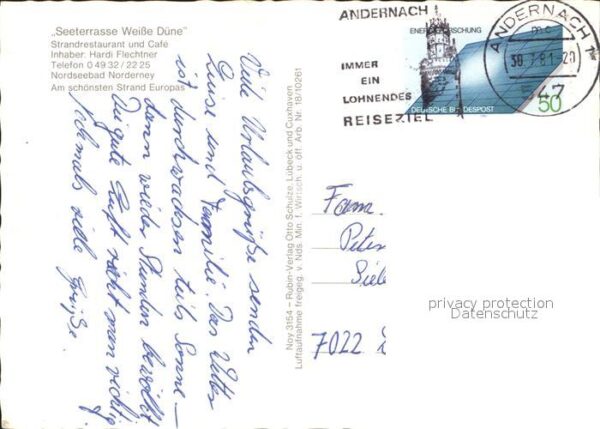 „Seeterrasse Weiße Düne"
Strandrestaurant und Café
Inhaber: Hardi Flechtner
Telefon 0 49 32 / 22 25
Nordseebad Norderney
Am schönsten Strand Europas
Viele Urlaubsgrüße senden
Luise und Familie. Das Wetter
ist durchwachsen teils Sonne –
dann wieder Stunden bewölkt
Die gute Luft nicht man richtig
nochmals viele Grüße
Noy 3154 – Rubin-Verlag Otto Schulze, Lübeck und Cuxhaven
Luftaufnahme freigeg. v. Nds. Min. f. Wirtsch. u. öff. Arb. Nr. 18/10261
ANDERNACH
IMMER
EIN
LOHNENDES
REISEZIEL
ENERGIEFORSCHUNG
DEUTSCHE BUNDESPOST
50
ANDERNACH 1
mc
30.7.81-20
547
Fam.
Peter
Siele
7022
privacy protection
Datenschutz